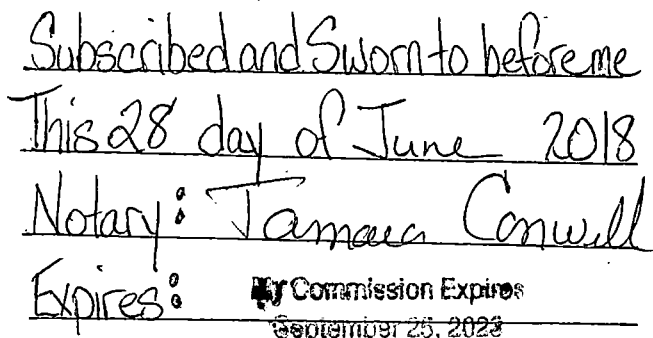 Subscribed and Sworn to before me
This 28 day of June 2018
Notary: Tamara Conwill
Expires: My Commission Expires
September 25, 2023